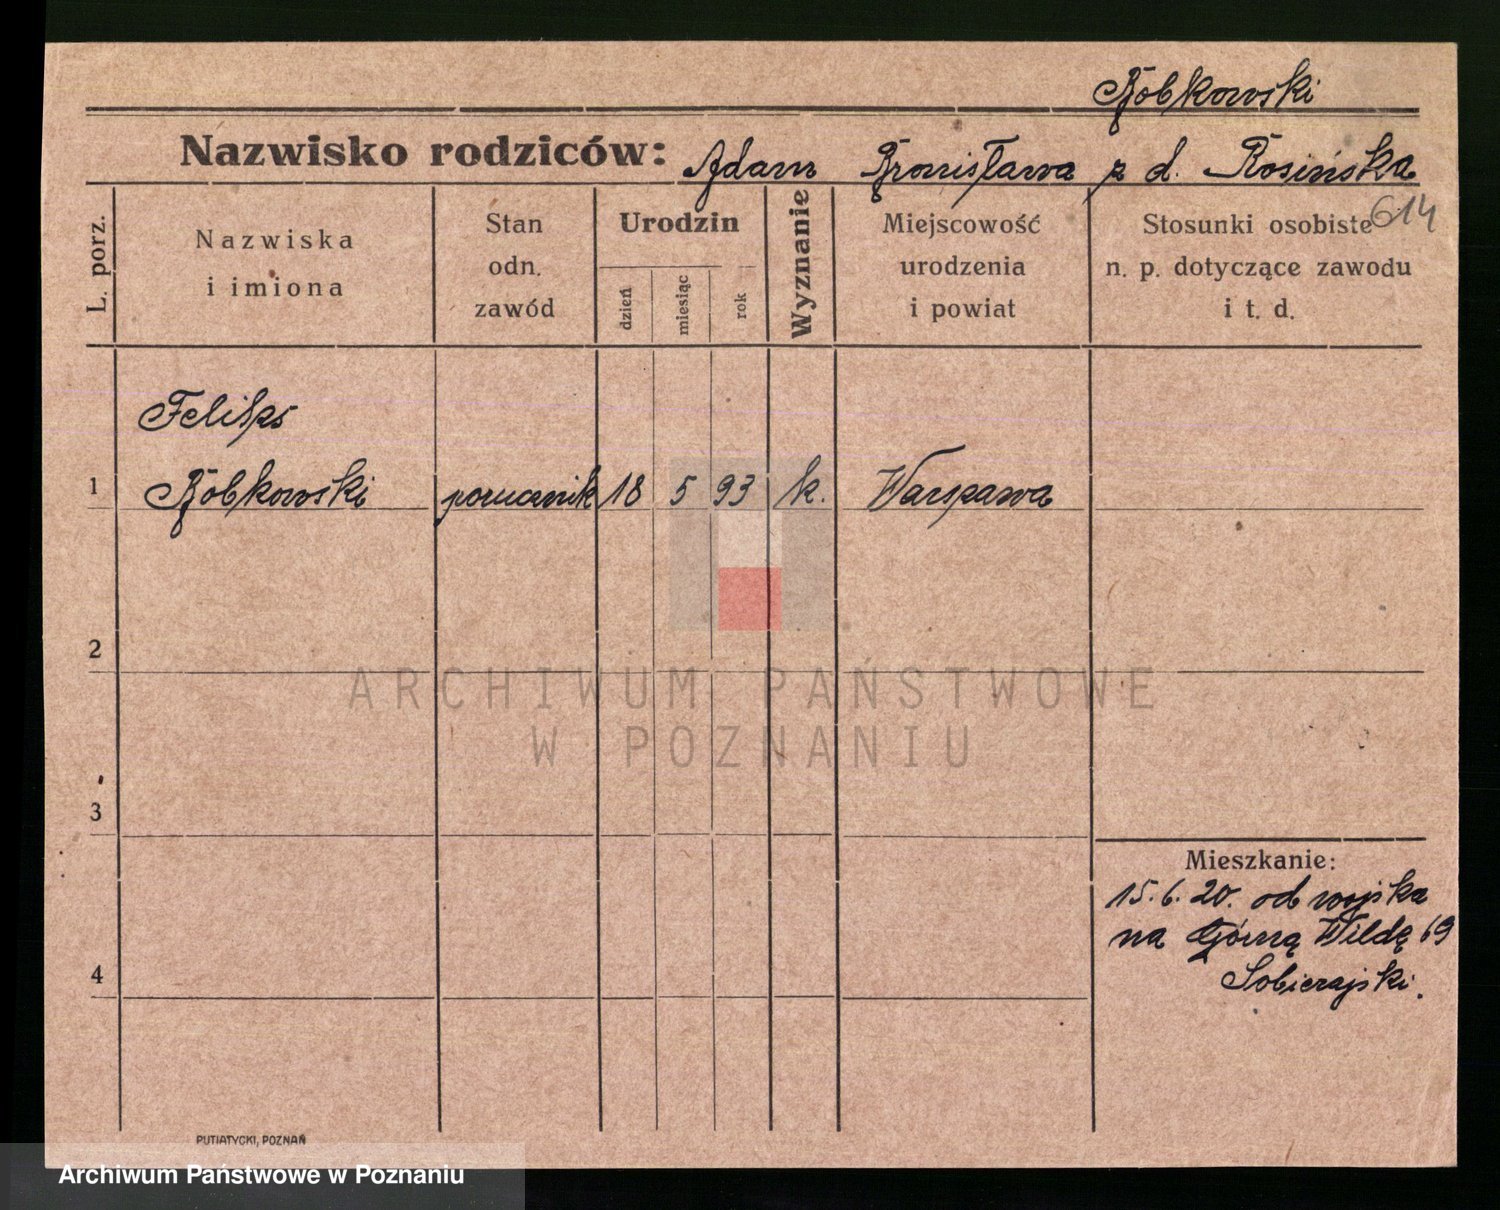 Bobkowski
Nazwisko rodziców: Adam Bronisława z d. Rosińska
614
L. porz.
Nazwiska
i imiona
Stan
odn.
zawód
Urodzin
dzień
miesiąc
rok
Wyznanie
Miejscowość
urodzenia
i powiat
Stosunki osobiste
n. p. dotyczące zawodu
i t. d.
Feliks
1 Bobkowski porucznik 18 5 93 k. Warszawa
2
ARCHIWUM PAŃSTWOWE
W POZNANIU
3
Mieszkanie:
15.6.20. od wojska
na Górną Wildę 69
Sobierajski.
4
PUTIATYCKI, POZNAŃ
Archiwum Państwowe w Poznaniu